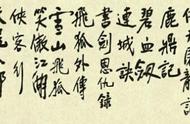 鹿鼎記
碧血劍
連城訣
書劍恩仇錄
飛狐外傳
雪山飛狐
笑傲江湖
俠客行
天龍八部